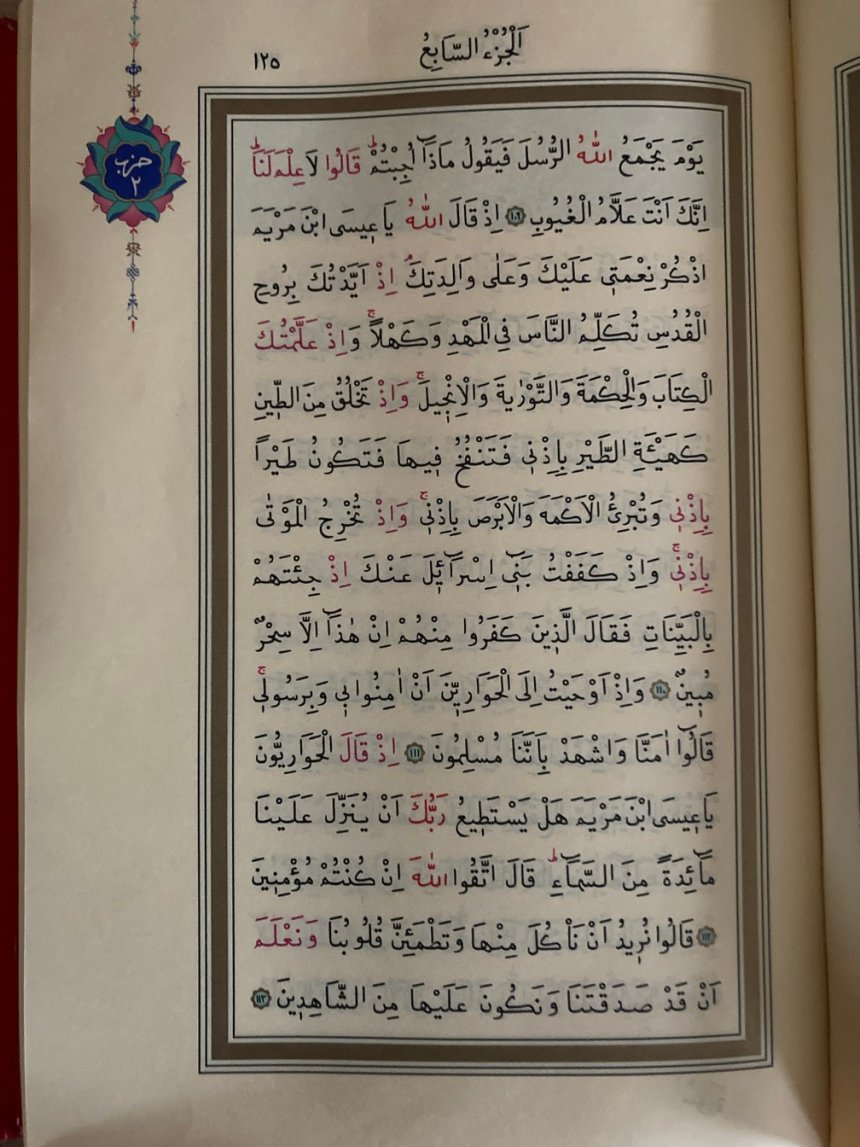 اَلْجُزْءُ السَّابِعُ
١٢٥
حزب
٢
يَوْمَ يَجْمَعُ اللّٰهُ الرُّسُلَ فَيَقُولُ مَاذَٓا اُجِبْتُمْۜ قَالُوا لَا عِلْمَ لَنَاۜ
اِنَّكَ اَنْتَ عَلَّامُ الْغُيُوبِ ﴿١٠٩﴾ اِذْ قَالَ اللّٰهُ يَا ع۪يسَى ابْنَ مَرْيَمَ
اذْكُرْ نِعْمَت۪ي عَلَيْكَ وَعَلٰى وَالِدَتِكَۢ اِذْ اَيَّدْتُكَ بِرُوحِ
الْقُدُسِ تُكَلِّمُ النَّاسَ فِي الْمَهْدِ وَكَهْلًاۚ وَاِذْ عَلَّمْتُكَ
الْكِتَابَ وَالْحِكْمَةَ وَالتَّوْرٰيةَ وَالْاِنْج۪يلَۚ وَاِذْ تَخْلُقُ مِنَ الطّ۪ينِ
كَهَيْـَٔةِ الطَّيْرِ بِاِذْن۪ي فَتَنْفُخُ ف۪يهَا فَتَكُونُ طَيْرًا
بِاِذْن۪ي وَتُبْرِئُ الْاَكْمَهَ وَالْاَبْرَصَ بِاِذْن۪يۚ وَاِذْ تُخْرِجُ الْمَوْتٰى
بِاِذْن۪يۚ وَاِذْ كَفَفْتُ بَن۪ٓي اِسْرَٓائ۪لَ عَنْكَ اِذْ جِئْتَهُمْ
بِالْبَيِّنَاتِ فَقَالَ الَّذ۪ينَ كَفَرُوا مِنْهُمْ اِنْ هٰذَٓا اِلَّا سِحْرٌ
مُب۪ينٌ ﴿١١٠﴾ وَاِذْ اَوْحَيْتُ اِلَى الْحَوَارِيّ۪نَ اَنْ اٰمِنُوا ب۪ي وَبِرَسُول۪يۚ
قَالُٓوا اٰمَنَّا وَاشْهَدْ بِاَنَّنَا مُسْلِمُونَ ﴿١١١﴾ اِذْ قَالَ الْحَوَارِيُّونَ
يَا ع۪يسَى ابْنَ مَرْيَمَ هَلْ يَسْتَط۪يعُ رَبُّكَ اَنْ يُنَزِّلَ عَلَيْنَا
مَٓائِدَةً مِنَ السَّمَٓاءِۜ قَالَ اتَّقُوا اللّٰهَ اِنْ كُنْتُمْ مُؤْمِن۪ينَ
﴿١١٢﴾ قَالُوا نُر۪يدُ اَنْ نَأْكُلَ مِنْهَا وَتَطْمَئِنَّ قُلُوبُنَا وَنَعْلَمَ
اَنْ قَدْ صَدَقْتَنَا وَنَكُونَ عَلَيْهَا مِنَ الشَّاهِد۪ينَ ﴿١١٣﴾